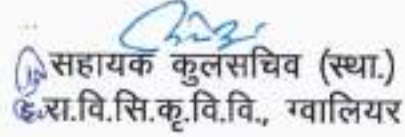 सहायक कुलसचिव (स्था.)
रा.वि.सि.कृ.वि.वि., ग्वालियर